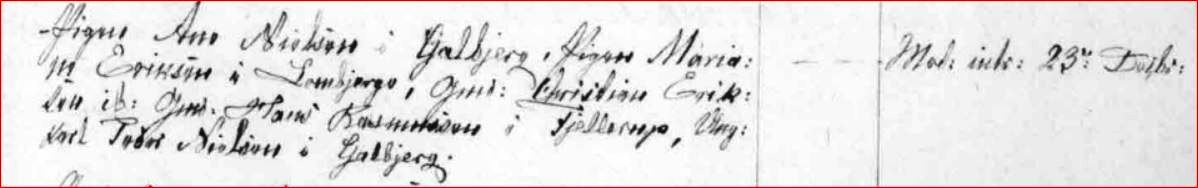 Pigen Ane Nielsen i Galbjerg, Pigen Maria:
ne Eriksen i Lombjerge, Gmd: Christian Erik:
sen ib: Gmd. Hans Rasmussen i Fjellerup, Ung:
karl Peder Nielsen i Galbjerg.
Mod: intr: 23de